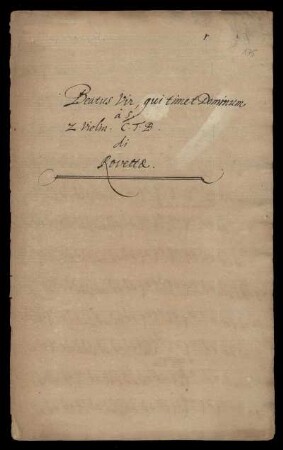 Beatus Vir, qui timet Dominum
à 5.
2 Violin. C. T. B.
di
Rovetta.